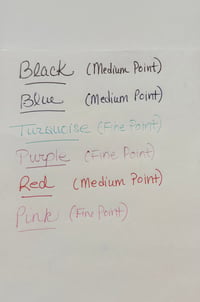 Black (Medium Point)
Blue (Medium Point)
Turquoise (Fine Point)
Purple (Fine Point)
Red (Medium Point)
Pink (Fine Point)